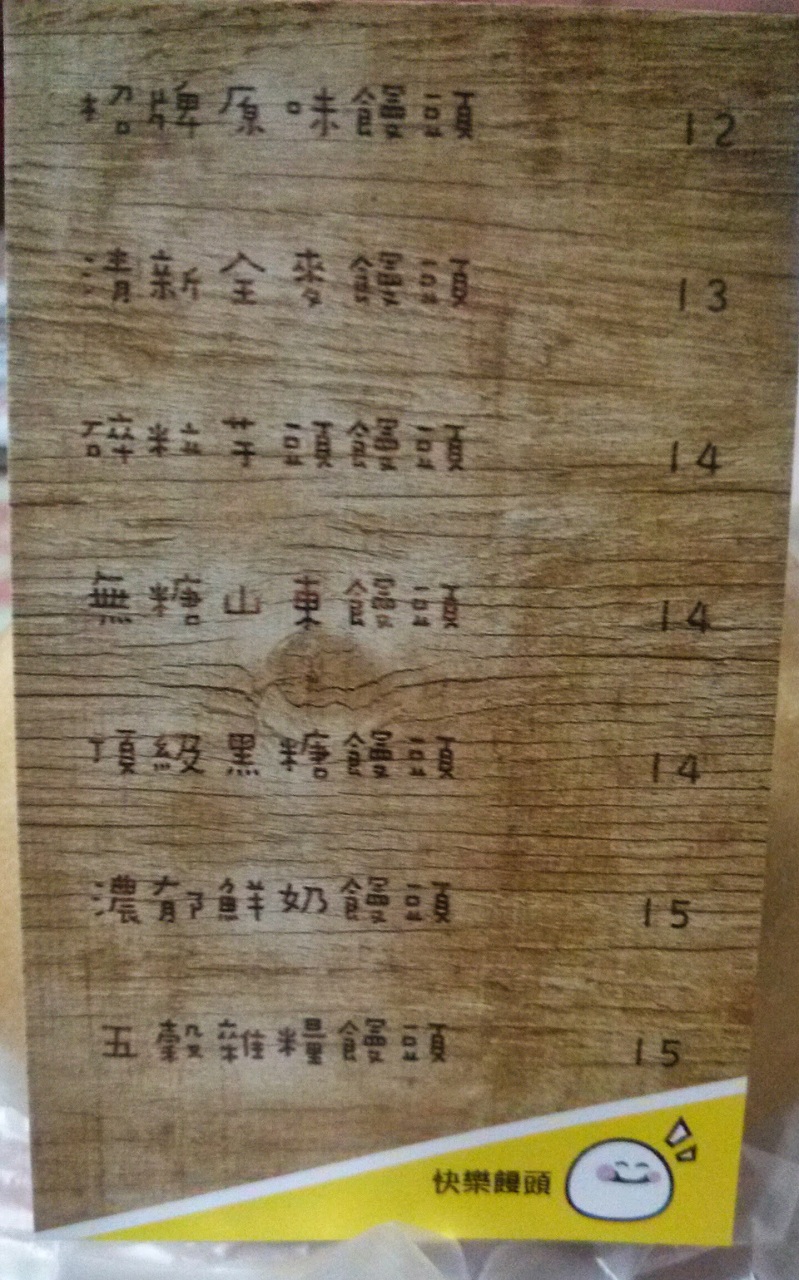 招牌原味饅頭 12
清新全麥饅頭 13
碎粒芋頭饅頭 14
無糖山東饅頭 14
頂級黑糖饅頭 14
濃郁鮮奶饅頭 15
五穀雜糧饅頭 15
快樂饅頭